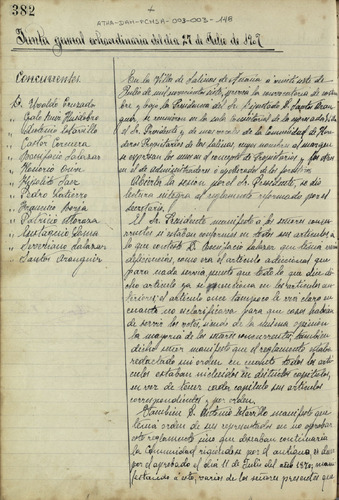 382
ATHA-DAH-FCHSA-003-003-148
Junta general extraordinaria del día 27 de Julio de 1907
Concurrentes
D. Ubaldo Pruzado
" Galo
" Antonio Labarillo
" Castor Corcuera
" Bonifacio Salazar
" Honorio
" Hipólito Saez
" Pedro Gutierro
" Francisco Angulo
" Patricio Moraza
" Eustaquio
" Severiano Salazar
" Santos Aranguiz
En la Villa de Salinas de Añana a veintisiete de
Julio de mil novecientos siete, previa la convocatoria de nom-
bre, y bajo la Presidencia del Sr. Diputado D. Santos Aran-
guiz, se reunieron en la sala consistorial de la expresada, el
el Sr. Presidente y de mas vocales de la Comunidad de Here-
deros Propietarios de las Salinas, cuyos nombres al margen
se expresan los unos en el concepto de Propietarios y los otros en
el de administradores o apoderados de los
Abierta la sesion por el Sr. Presidente, se dio
lectura integra al reglamento reformado por el
Secretario.
El Sr. Presidente manifestó á los señores concu-
rrentes si estaban conformes en todos sus articulos a
lo que contestó D. Bonifacio Salazar que tenia varias
deficiencias, como era el articulo adicional que
para nada servia puesto que todo lo que dice di-
cho articulo ya se menciona en los articulos an-
teriores; el articulo once tampoco lo era claro en
cuanto no esclarificava para que cosas habian
de servir los votos, siendo de la misma opinion
la mayoria de los señores concurrentes; tambien
dicho señor manifestó que el reglamento estaba
redactado sin orden en cuanto todos los arti-
culos estaban incluidos en distintos capitulos,
en vez de tener cada capitulo sus articulos
correspondientes y por orden.
Tambien D. Antonio Labarillo manifestó que
tenia orden de sus representados en no aprobar
este reglamento sino que deseaban continuaria
la Comunidad rigiendose por el antiguo, es decir
por el aprobado el dia 11 de Julio del año 1870, mani-
festando á esto, varios de los señores presentes que